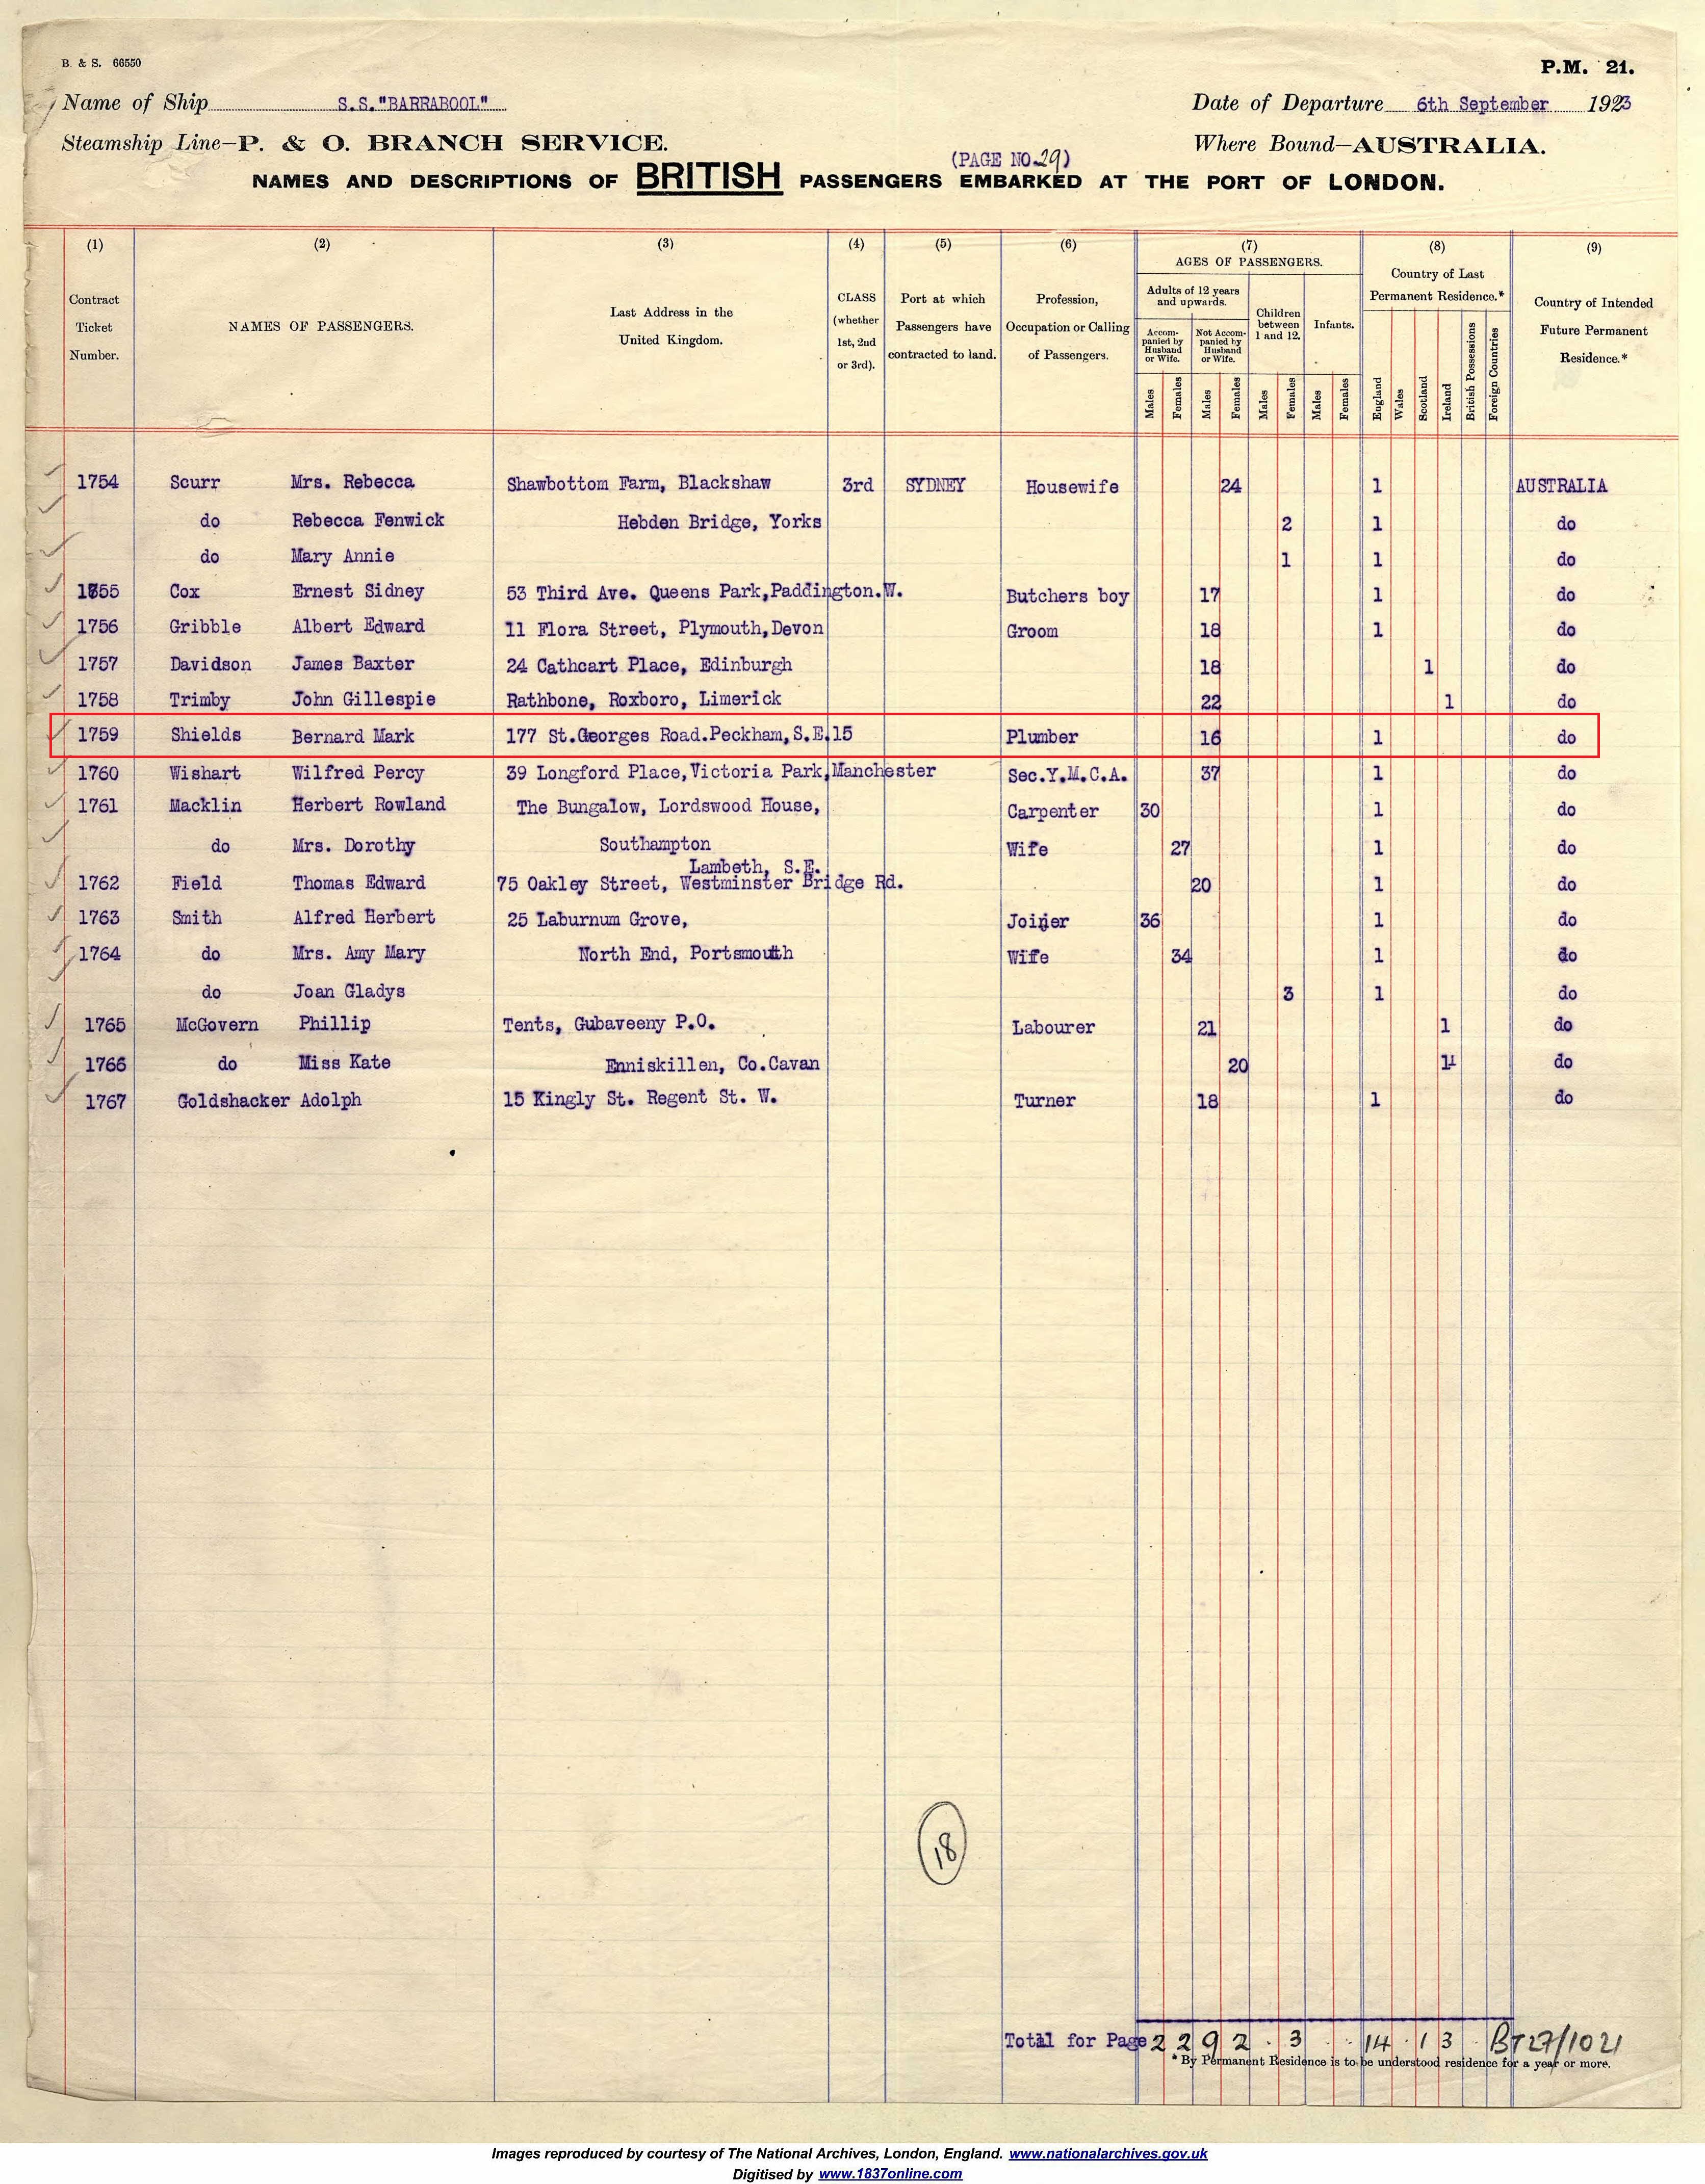 B. & S. 66550
P.M. 21.
Name of Ship S.S."BARRABOOL"
Date of Departure 6th September 1923
Steamship Line—P. & O. BRANCH SERVICE.
Where Bound—AUSTRALIA.
(PAGE NO.29)
NAMES AND DESCRIPTIONS OF BRITISH PASSENGERS EMBARKED AT THE PORT OF LONDON.
(1) (2) (3) (4) (5) (6) (7) (8) (9)
Contract Ticket Number.
NAMES OF PASSENGERS.
Last Address in the United Kingdom.
CLASS (whether 1st, 2nd or 3rd).
Port at which Passengers have contracted to land.
Profession, Occupation or Calling of Passengers.
AGES OF PASSENGERS.
Adults of 12 years and upwards.
Accompanied by Husband or Wife.
Not Accompanied by Husband or Wife.
Children between 1 and 12.
Infants.
Males Females Males Females Males Females Males Females
Country of Last Permanent Residence.*
England Wales Scotland Ireland British Possessions Foreign Countries
Country of Intended Future Permanent Residence.*
1754 Scurr Mrs. Rebecca Shawbottom Farm, Blackshaw 3rd SYDNEY Housewife 24 1 AUSTRALIA
do Rebecca Fenwick Hebden Bridge, Yorks 2 1 do
do Mary Annie 1 1 do
1755 Cox Ernest Sidney 53 Third Ave. Queens Park,Paddington.W. Butchers boy 17 1 do
1756 Gribble Albert Edward 11 Flora Street, Plymouth,Devon Groom 18 1 do
1757 Davidson James Baxter 24 Cathcart Place, Edinburgh 18 1 do
1758 Trimby John Gillespie Rathbone, Roxboro, Limerick 22 1 do
1759 Shields Bernard Mark 177 St.Georges Road.Peckham,S.E.15 Plumber 16 1 do
1760 Wishart Wilfred Percy 39 Longford Place,Victoria Park,Manchester Sec.Y.M.C.A. 37 1 do
1761 Macklin Herbert Rowland The Bungalow, Lordswood House, Carpenter 30 1 do
do Mrs. Dorothy Southampton Wife 27 1 do
Lambeth, S.E.
1762 Field Thomas Edward 75 Oakley Street, Westminster Bridge Rd. 20 1 do
1763 Smith Alfred Herbert 25 Laburnum Grove, Joiner 36 1 do
1764 do Mrs. Amy Mary North End, Portsmouth Wife 34 1 do
do Joan Gladys 3 1 do
1765 McGovern Phillip Tents, Gubaveeny P.O. Labourer 21 1 do
1766 do Miss Kate Enniskillen, Co.Cavan 20 1 do
1767 Goldshacker Adolph 15 Kingly St. Regent St. W. Turner 18 1 do
18
Total for Page 2 2 9 2 . 3 . . 14 . 1 3 . BT27/1021
* By Permanent Residence is to be understood residence for a year or more.
Images reproduced by courtesy of The National Archives, London, England. www.nationalarchives.gov.uk
Digitised by www.1837online.com